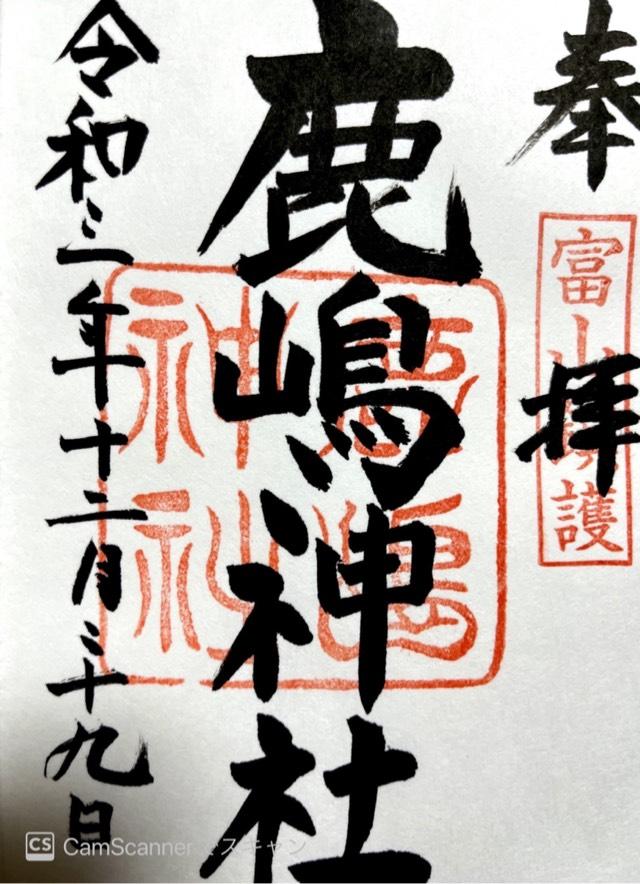 奉拝
富山鎮護
鹿嶋神社
神社
令和三年十二月二十九日
CS CamScanner でスキャン